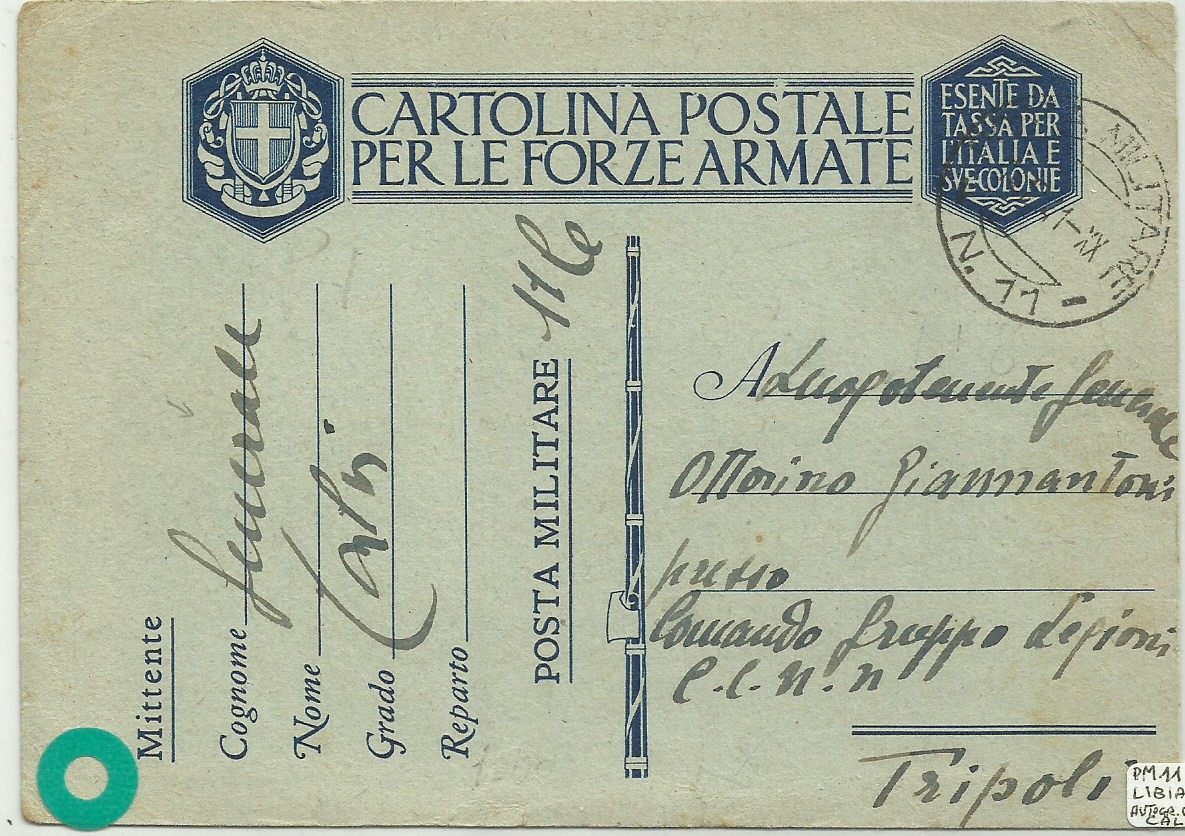 CARTOLINA POSTALE
PER LE FORZE ARMATE
ESENTE DA
TASSA PER
L'ITALIA E
SVE COLONIE
MILITARE
N. 11
41-XX
Mittente
Cognome Generale
Nome
Grado
Reparto
POSTA MILITARE 11
A Luogotenente Generale
Ottorino Giannantoni
presso
Comando Gruppo Legioni
C.C.N.N
Tripoli
PM11
LIBIA